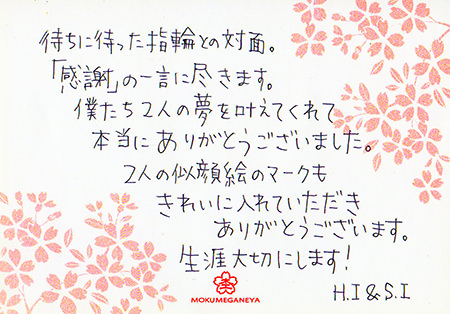 待ちに待った指輪との対面。
「感謝」の一言に尽きます。
僕たち2人の夢を叶えてくれて
本当にありがとうございました。
2人の似顔絵のマークも
きれいに入れていただき
ありがとうございます。
生涯大切にします!
H.I & S.I
MOKUMEGANEYA